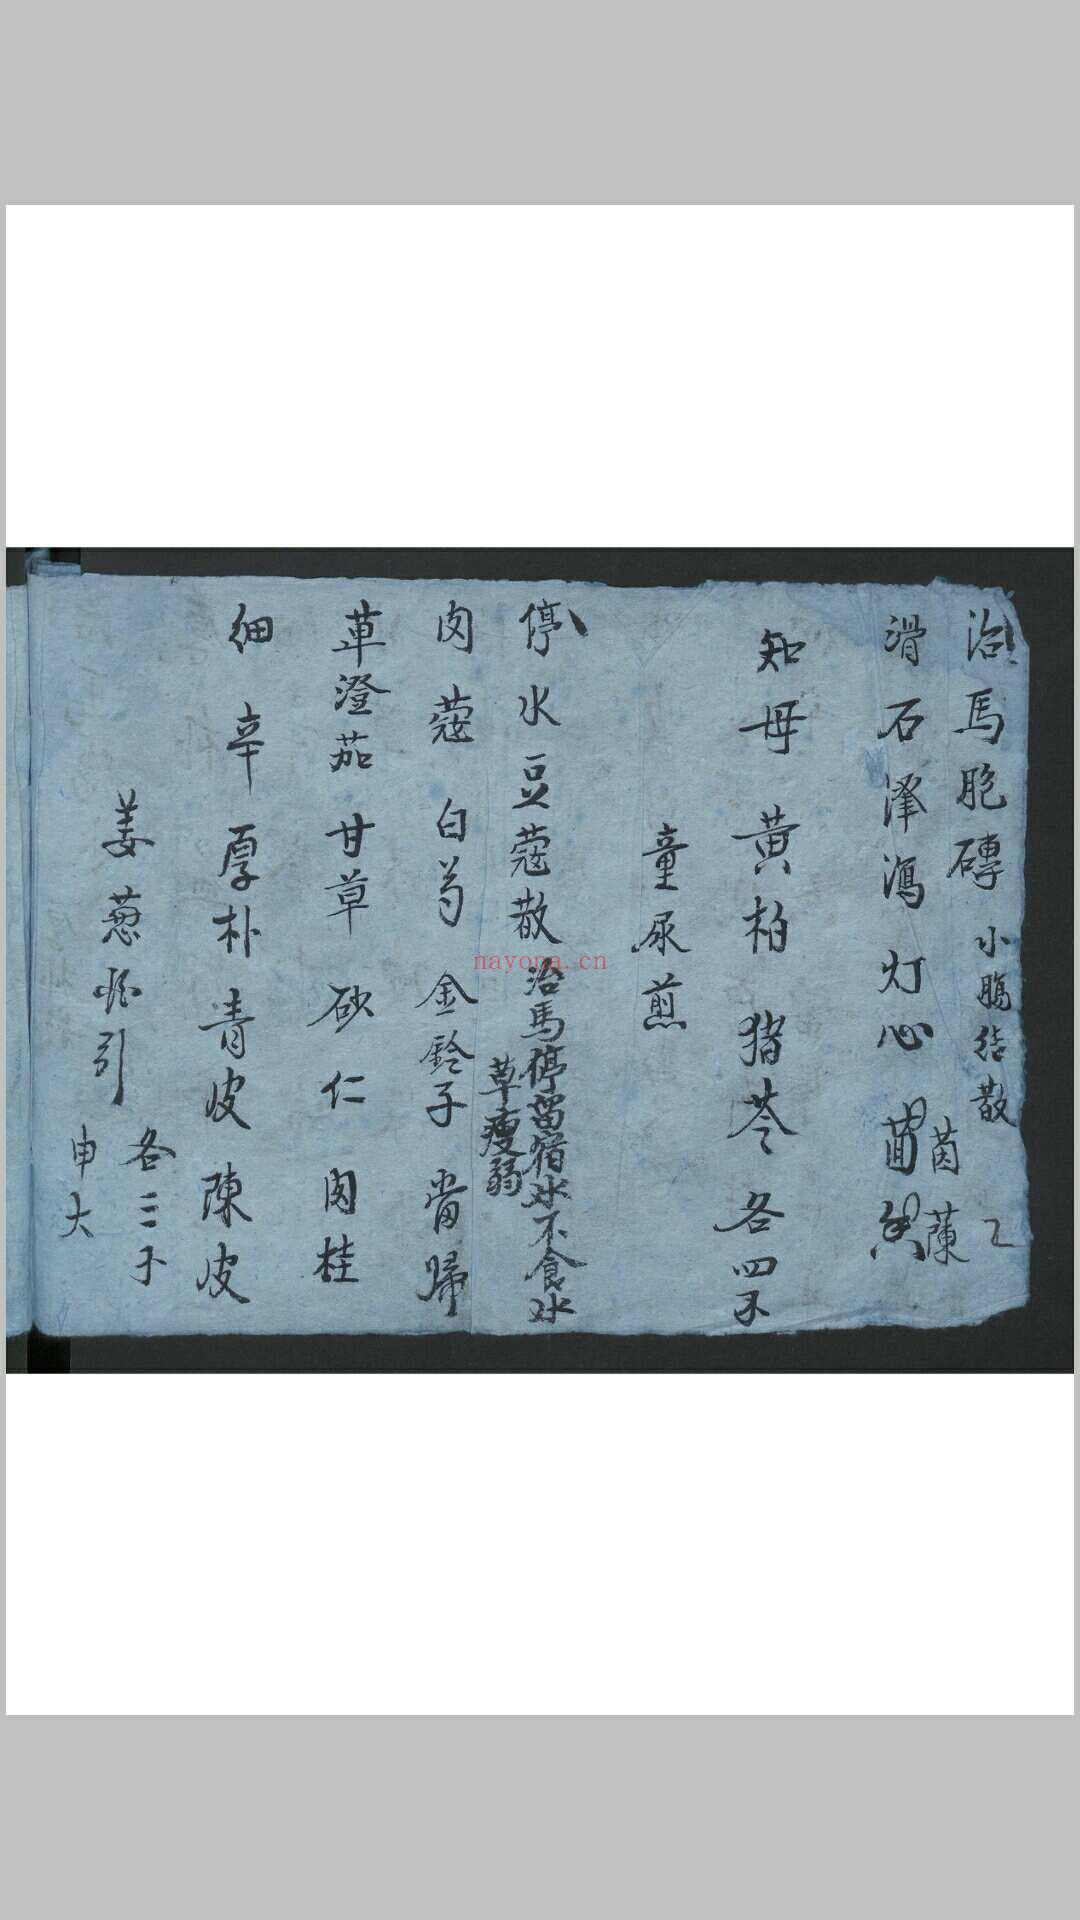 治馬胞磚 小腸结散
滑石泽瀉灯心茵蔯
知母 黄柏 猪苓 各四
童尿煎
停水豆蔻散 治馬停畄宿水不食水
草瘦弱
肉蔻 白芍 金鈴子 當歸
蓽澄茄 甘草 砂仁 肉桂
细辛厚朴青皮陳皮
姜葱 引 各三
申大
nayona.cn